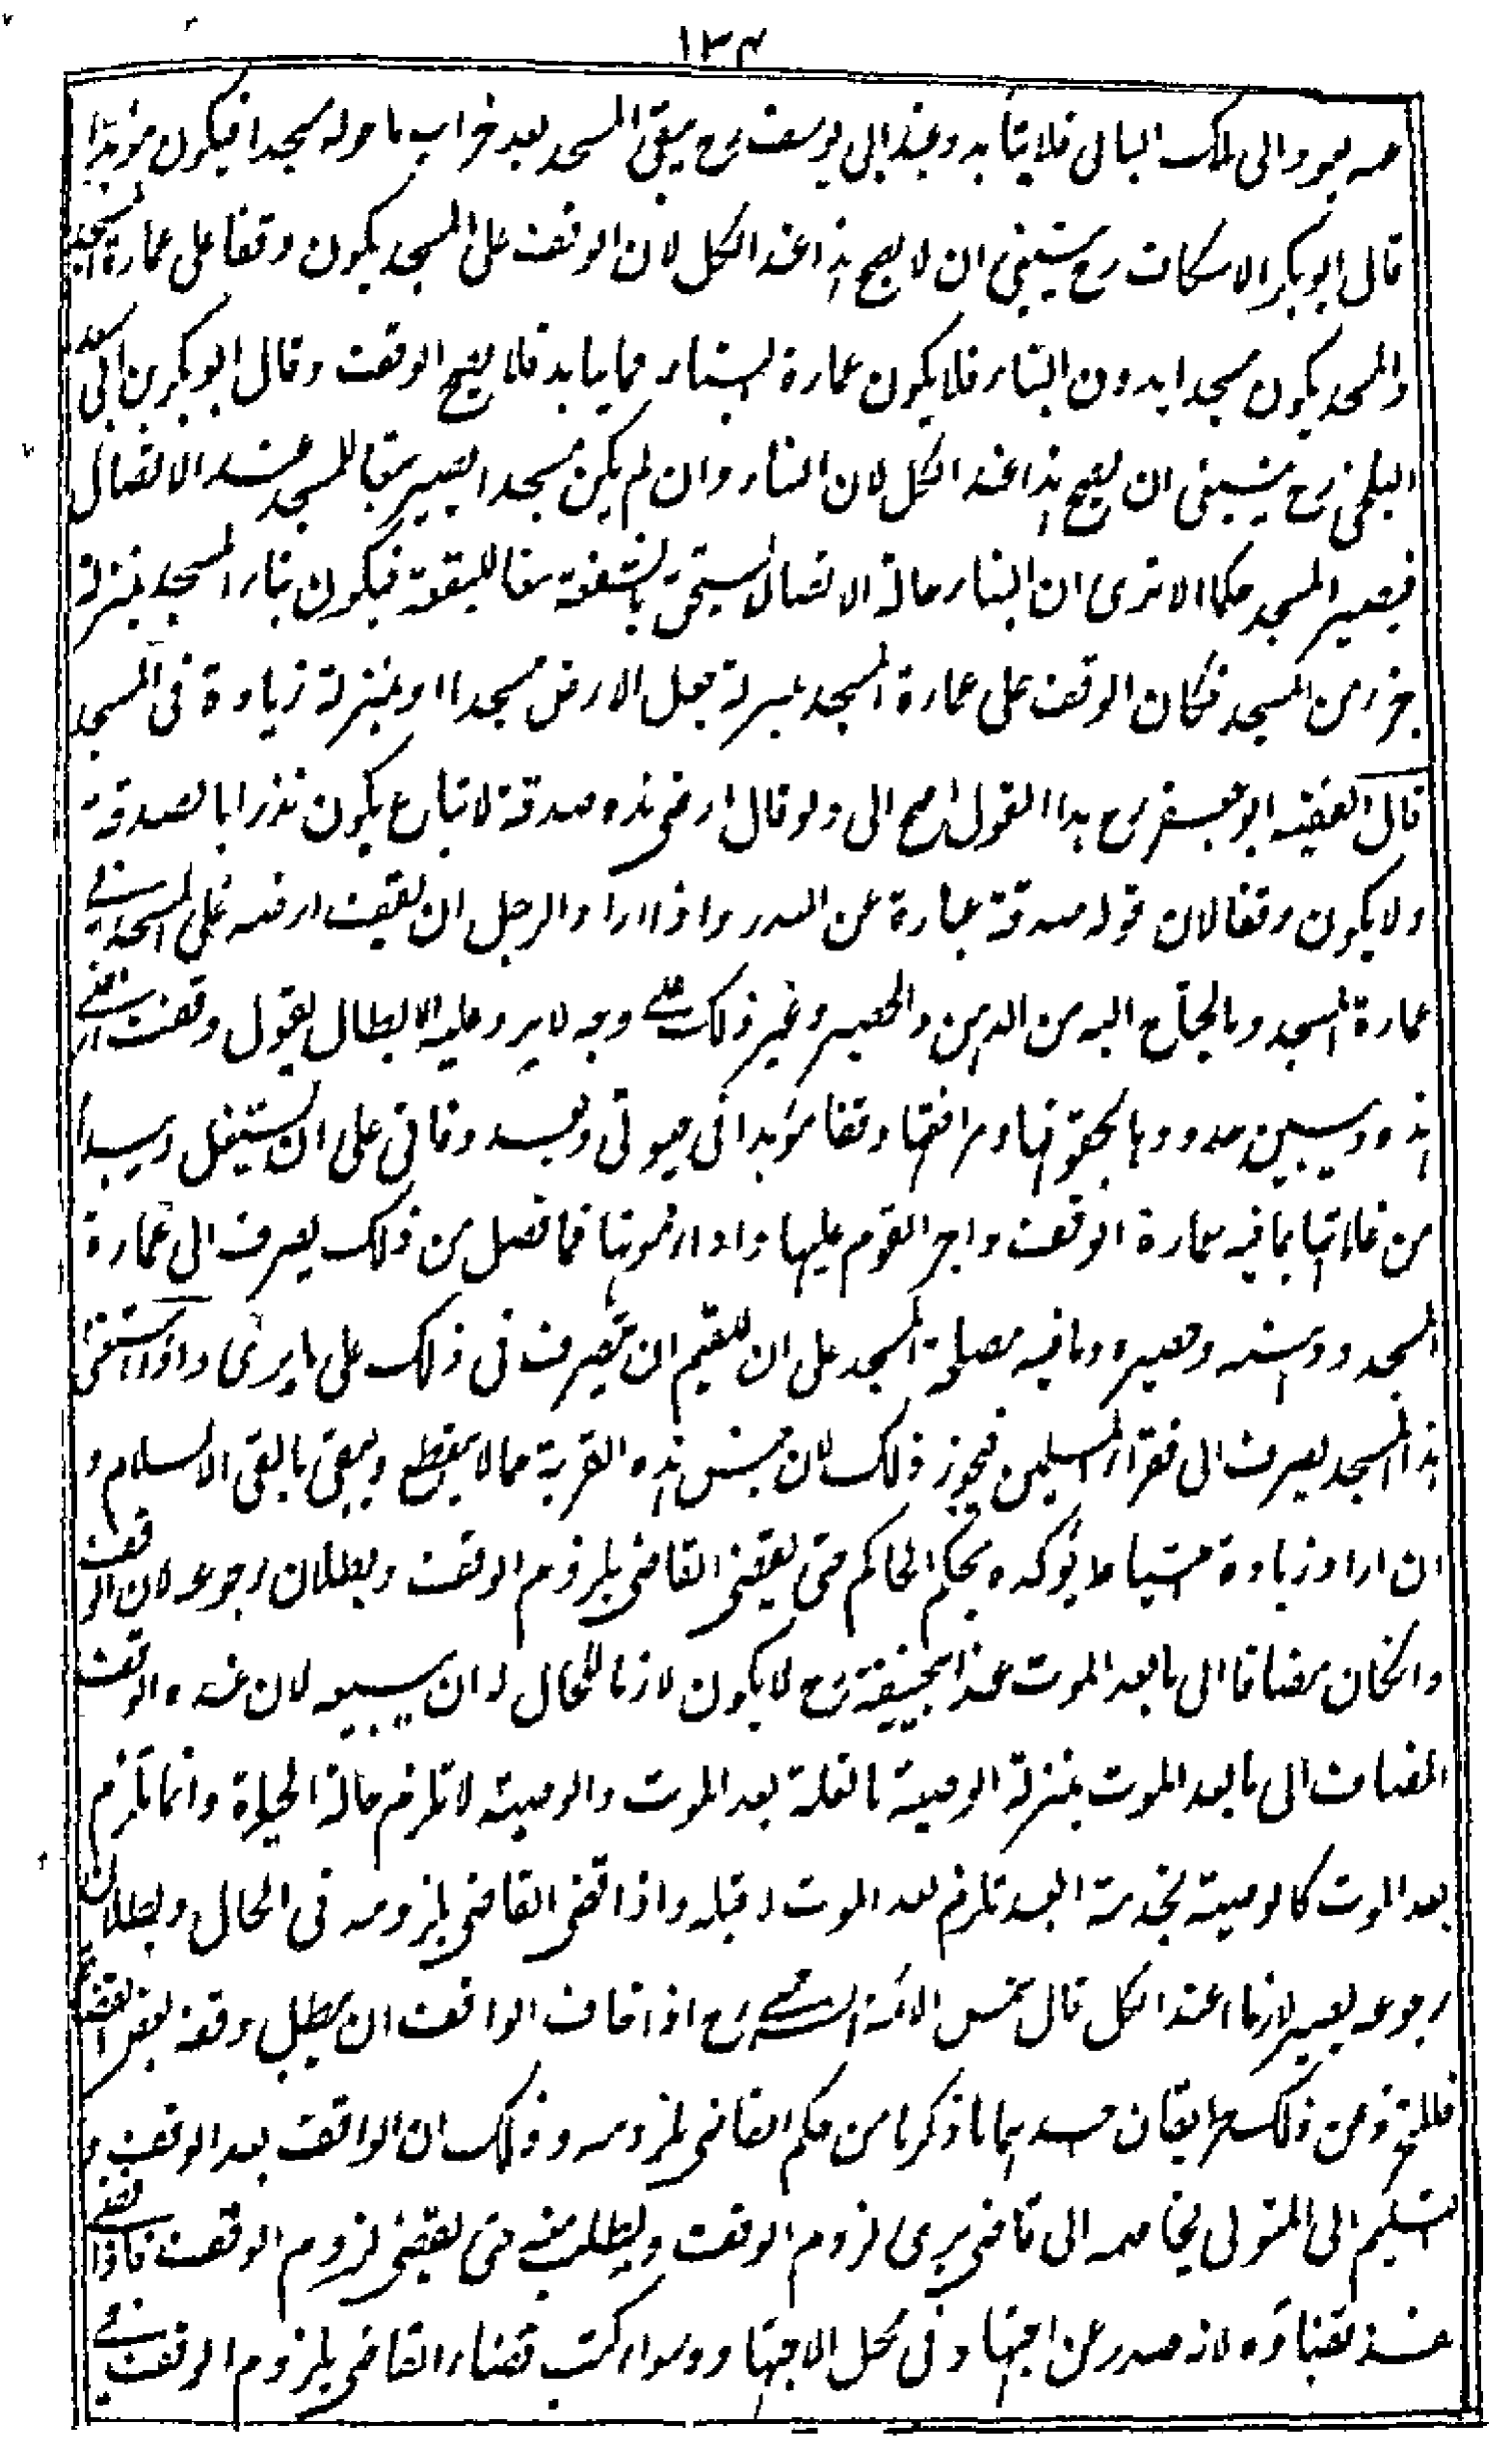 ١٣٤
حه يعود الى ملك البانى فلا يتأبد وعند ابى يوسف رح يبقى المسجد بعد خراب ما حوله مسجدا فيكون مؤبدا
قال ابو بكر الاسكاف رح ينبغى ان لا يصح هذا عند الكل لان الوقف على المسجد يكون وقفا على عمارة المسجد
والمسجد يكون مسجدا بدون البناء فلا يكون عمارة البناء مما يتابد فلا يصح الوقف وقال ابو بكر بن ابى سعد
البلخى رح ينبغى ان يصح هذا عند الكل لان البناء وان لم يكن مسجدا يصير تبعا للمسجد عند الاتصال
فيصير المسجد حكما الا ترى ان البناء حالة الاتصال يستحق بالشفعة تبعا للبقعة فيكون بناء المسجد بمنزلة
جزء من المسجد فكان الوقف على عمارة المسجد بمنزلة جعل الارض مسجدا او بمنزلة زيادة فى المسجد
قال الفقيه ابو جعفر رح هذا القول اصح الى ولو قال ارضى هذه صدقة لا تباع يكون نذرا بالصدقة
ولا يكون وقفا لان قوله صدقة عبارة عن النذر واذا اراد الرجل ان يقف ارضه على المسجد فى
عمارة المسجد وما يحتاج اليه من الدهن والحصير وغير ذلك على وجه لا يرد عليه الابطال يقول وقفت ارضى
هذه ويبين حدودها بحقوقها ومرافقها وقفا مؤبدا فى حيوتى وبعد وفاتى على ان يستغل ويبدأ
من غلاتها بما فيه عمارة الوقف واجر القوم عليها واداء مؤنتها فما فضل من ذلك يصرف الى عمارة
المسجد ودهنه وحصيره وما فيه مصلحة المسجد على ان للقيم ان يتصرف فى ذلك على ما يرى واذا استغنى
هذا المسجد يصرف الى فقراء المسلمين فيجوز ذلك لان جنس هذه القربة مما لا ينقطع ويبقى ما بقى الاسلام و
ان اراد زيادة احتياط يؤكده بحكم الحاكم حتى يقضى القاضى بلزوم الوقف وبطلان رجوعه لان الوقف
وان كان مضافا الى ما بعد الموت عند ابيحنيفة رح لا يكون لازما للحال له ان يبيعه لان عنده الوقف
المضاف الى ما بعد الموت بمنزلة الوصية بالغلة بعد الموت والوصية لا تلزم حالة الحياة وانما تلزم
بعد الموت كالوصية بخدمة العبد تلزم بعد الموت لا قبله واذا قضى القاضى بلزومه فى الحال وبطلان
رجوعه يصير لازما عند الكل قال شمس الائمة السرخسى رح اذا خاف الواقف ان يبطل وقفه بعض القضاة
فللتحرز عن ذلك طريقان احدهما ما ذكرنا من حكم القاضى بلزومه وذلك ان الواقف بعد الوقف و
التسليم الى المتولى يخاصمه الى قاضى يرى لزوم الوقف ويطلب منه حتى يقضى لزوم الوقف فاذا قضى
نفذ قضاؤه لانه صدر عن اجتهاد فى محل الاجتهاد وسواء كتب قضاء القاضى بلزوم الوقف فى